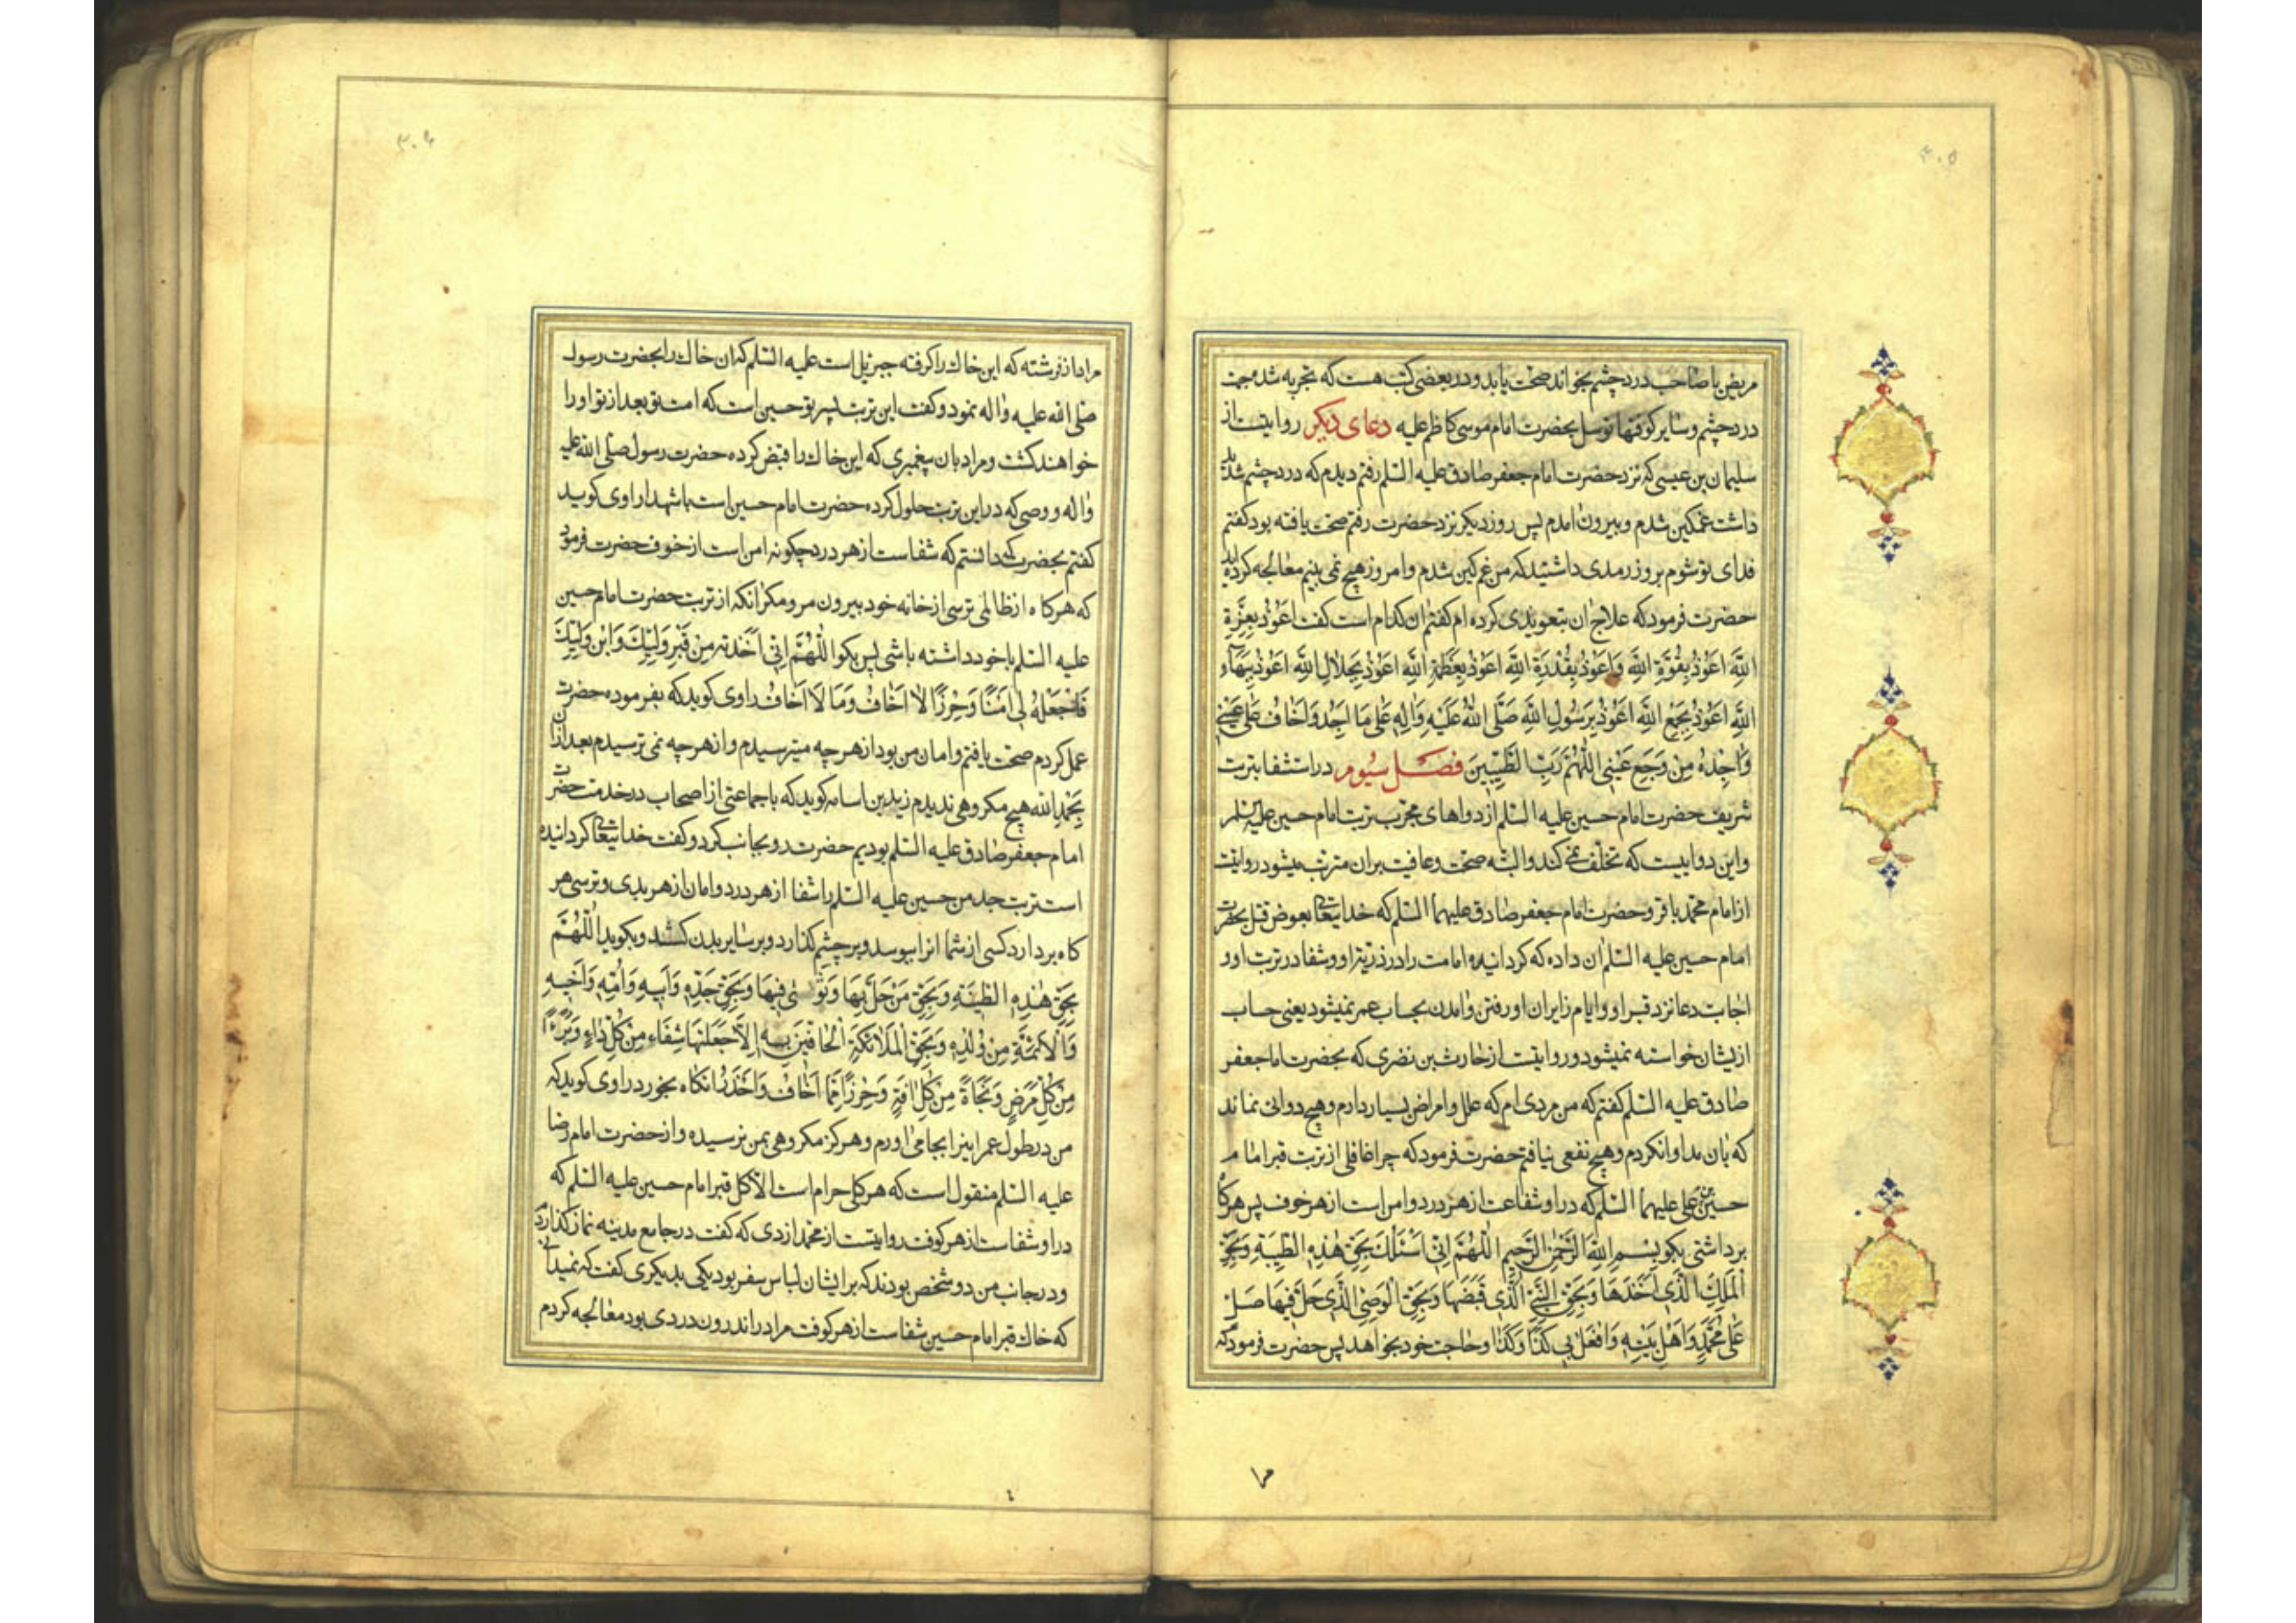 ۳۰۵
مریض یا صاحب درد چشم بخواند صحّت یابد و در بعضی کتب هست که تجربه شد مجهت
درد چشم و سایر کوفتها توسل بحضرت امام موسی کاظم علیه دعای دیکر روایتست از
سلیمان بن عیسی که نزد حضرت امام جعفر صادق علیه السّلم رفتم دیدم که درد چشم شدید
داشت غمکین شدم و بیرون امدم پس روز دیکر نزد حضرت رفتم صحّت یافته بود کفتم
فدای تو شوم بروز رمدی داشتید که من غمکین شدم و امروز هیچ نمی بینم معالجه کرده اید
حضرت فرمود که علاج ان بتعویذی کرده ام کفتم ان کدام است کفت اَعُوذُ بِعِزَّةِ
اللَّهِ اَعُوذُ بِقُوَّةِ اللَّهِ وَاَعُوذُ بِقُدْرَةِ اللَّهِ اَعُوذُ بِعَظَمَةِ اللَّهِ اَعُوذُ بِجَلَالِ اللَّهِ اَعُوذُ بِبَهَآءِ
اللَّهِ اَعُوذُ بِجَمْعِ اللَّهِ اَعُوذُ بِرَسُولِ اللَّهِ صَلَّی اللَّهُ عَلَیْهِ وَاٰلِهِ عَلٰی مَا اَجِدُ وَاَخَافُ عَلٰی عَیْنِی
وَاَجِدُهُ مِنْ وَجَعِ عَیْنِی اَللّٰهُمَّ رَبَّ الطَّیِّبِینَ فصل سیوم در استشفا بتربت
شریف حضرت امام حسین علیه السّلم از دواهای مجرّب تربت امام حسین علیه السّلم
و این دواییست که تخلّف نمی کند و البتّه صحّت و عافیت بران مترتب میشود روایتست
از امام محمّد باقر و حضرت امام جعفر صادق علیهما السّلم که خدایتعالی بعوض قتل حضرت
امام حسین علیه السّلم ان داده که کردانیده امامت را در ذرّیّت او و شفا در تربت او و
اجابت دعا نزد قبر او و ایام زایران او رفتن و امدن بحساب عمر نمیشود یعنی حساب
ازیشان خواسته نمیشود و روایتست از حارث بن نضری که بحضرت امام جعفر
صادق علیه السّلم کفتم که من مردی ام که علل و امراض بسیار دارم و هیچ دوائی نماند
که بان مداوا نکردم و هیچ نفعی نیافتم حضرت فرمود که چرا غافلی از تربت قبر امام
حسین بن علی علیهما السّلم که در او شفاعت از هر درد و امن است از هر خوف پس هرکاه
برداشتی بکو بِسْمِ اللَّهِ الرَّحْمٰنِ الرَّحِیمِ اَللّٰهُمَّ اِنِّی اَسْئَلُکَ بِحَقِّ هٰذِهِ الطِّینَةِ وَبِحَقِّ
الْمَلَکِ الَّذِی اَخَذَهَا وَبِحَقِّ النَّبِیِّ الَّذِی قَبَضَهَا وَبِحَقِّ الْوَصِیِّ الَّذِی حَلَّ فِیهَا صَلِّ
عَلٰی مُحَمَّدٍ وَاَهْلِ بَیْتِهِ وَافْعَلْ بِی کَذَا وَکَذَا و حاجت خود بخواهد پس حضرت فرمود که
۳۰۶
مراد از فرشته که این خاك را کرفته جبرئیل است علیه السّلم که ان خاك را بحضرت رسول
صلّی الله علیه واله نمود و کفت این تربت پسر تو حسین است که امت تو بعد از تو او را
خواهند کشت و مراد بان پیغمبری که این خاك را قبض کرده حضرت رسول صلّی الله علیه
واله و وصی که در این تربت حلول کرده حضرت امام حسین است با شهدا راوی کوید
کفتم بحضرت که دانستم که شفاست از هر درد چکونه امن است از خوف حضرت فرمود
که هرکاه از ظالمی ترسی از خانه خود بیرون مرو مکر انکه از تربت حضرت امام حسین
علیه السّلم با خود داشته باشی پس بکو اَللّٰهُمَّ اِنِّی اَخَذْتُهُ مِنْ قَبْرِ وَلِیِّكَ وَابْنِ وَلِیِّكَ
فَاجْعَلْهُ لِی اَمْنًا وَحِرْزًا لِمَا اَخَافُ وَمَا لَا اَخَافُ راوی کوید که بفرموده حضرت
عمل کردم صحّت یافتم و امان من بود از هر چه میترسیدم و از هر چه نمی ترسیدم بعد از ان
بِحَمْدِ الله هیچ مکروهی ندیدم زید بن اسامه کوید که با جماعتی از اصحاب در خدمت حضرت
امام جعفر صادق علیه السّلم بودیم حضرت رو بجانب کرد و کفت خدایتعالی کردانیده
است تربت جد من حسین علیه السّلم را شفا از هر درد و امان از هر بدی و ترسی هر
کاه بردارد کسی از شما انرا ببوسد و بر چشم کذارد و بر سایر بدن کشد و بکوید اَللّٰهُمَّ
بِحَقِّ هٰذِهِ الطِّینَةِ وَبِحَقِّ مَنْ حَلَّ بِهَا وَثَوٰی فِیهَا وَبِحَقِّ جَدِّهِ وَاَبِیهِ وَاُمِّهِ وَاَخِیهِ
وَالْاَئِمَّةِ مِنْ وُلْدِهِ وَبِحَقِّ الْمَلَائِکَةِ الْحَافِّینَ بِهِ اِلَّا جَعَلْتَهَا شِفَاءً مِنْ کُلِّ دَاءٍ وَبُرْءًا
مِنْ کُلِّ مَرَضٍ وَنَجَاةً مِنْ کُلِّ اٰفَةٍ وَحِرْزًا مِمَّا اَخَافُ وَاَحْذَرُ انکاه بخورد راوی کوید که
من در طول عمر اینرا بجا می اورم و هرکز مکروهی بمن نرسیده و از حضرت امام رضا
علیه السّلم منقول است که هر کلی حرام است الّا کل قبر امام حسین علیه السّلم که
در او شفاست از هر کوفت روایتست از محمّد ازدی که کفت در جامع مدینه نماز کذاردم
و در جانب من دو شخص بودند که بر ایشان لباس سفر بود یکی بدیکری کفت که نمیدانی
که خاك قبر امام حسین شفاست از هر کوفت مرا در اندرون دردی بود معالجه کردم